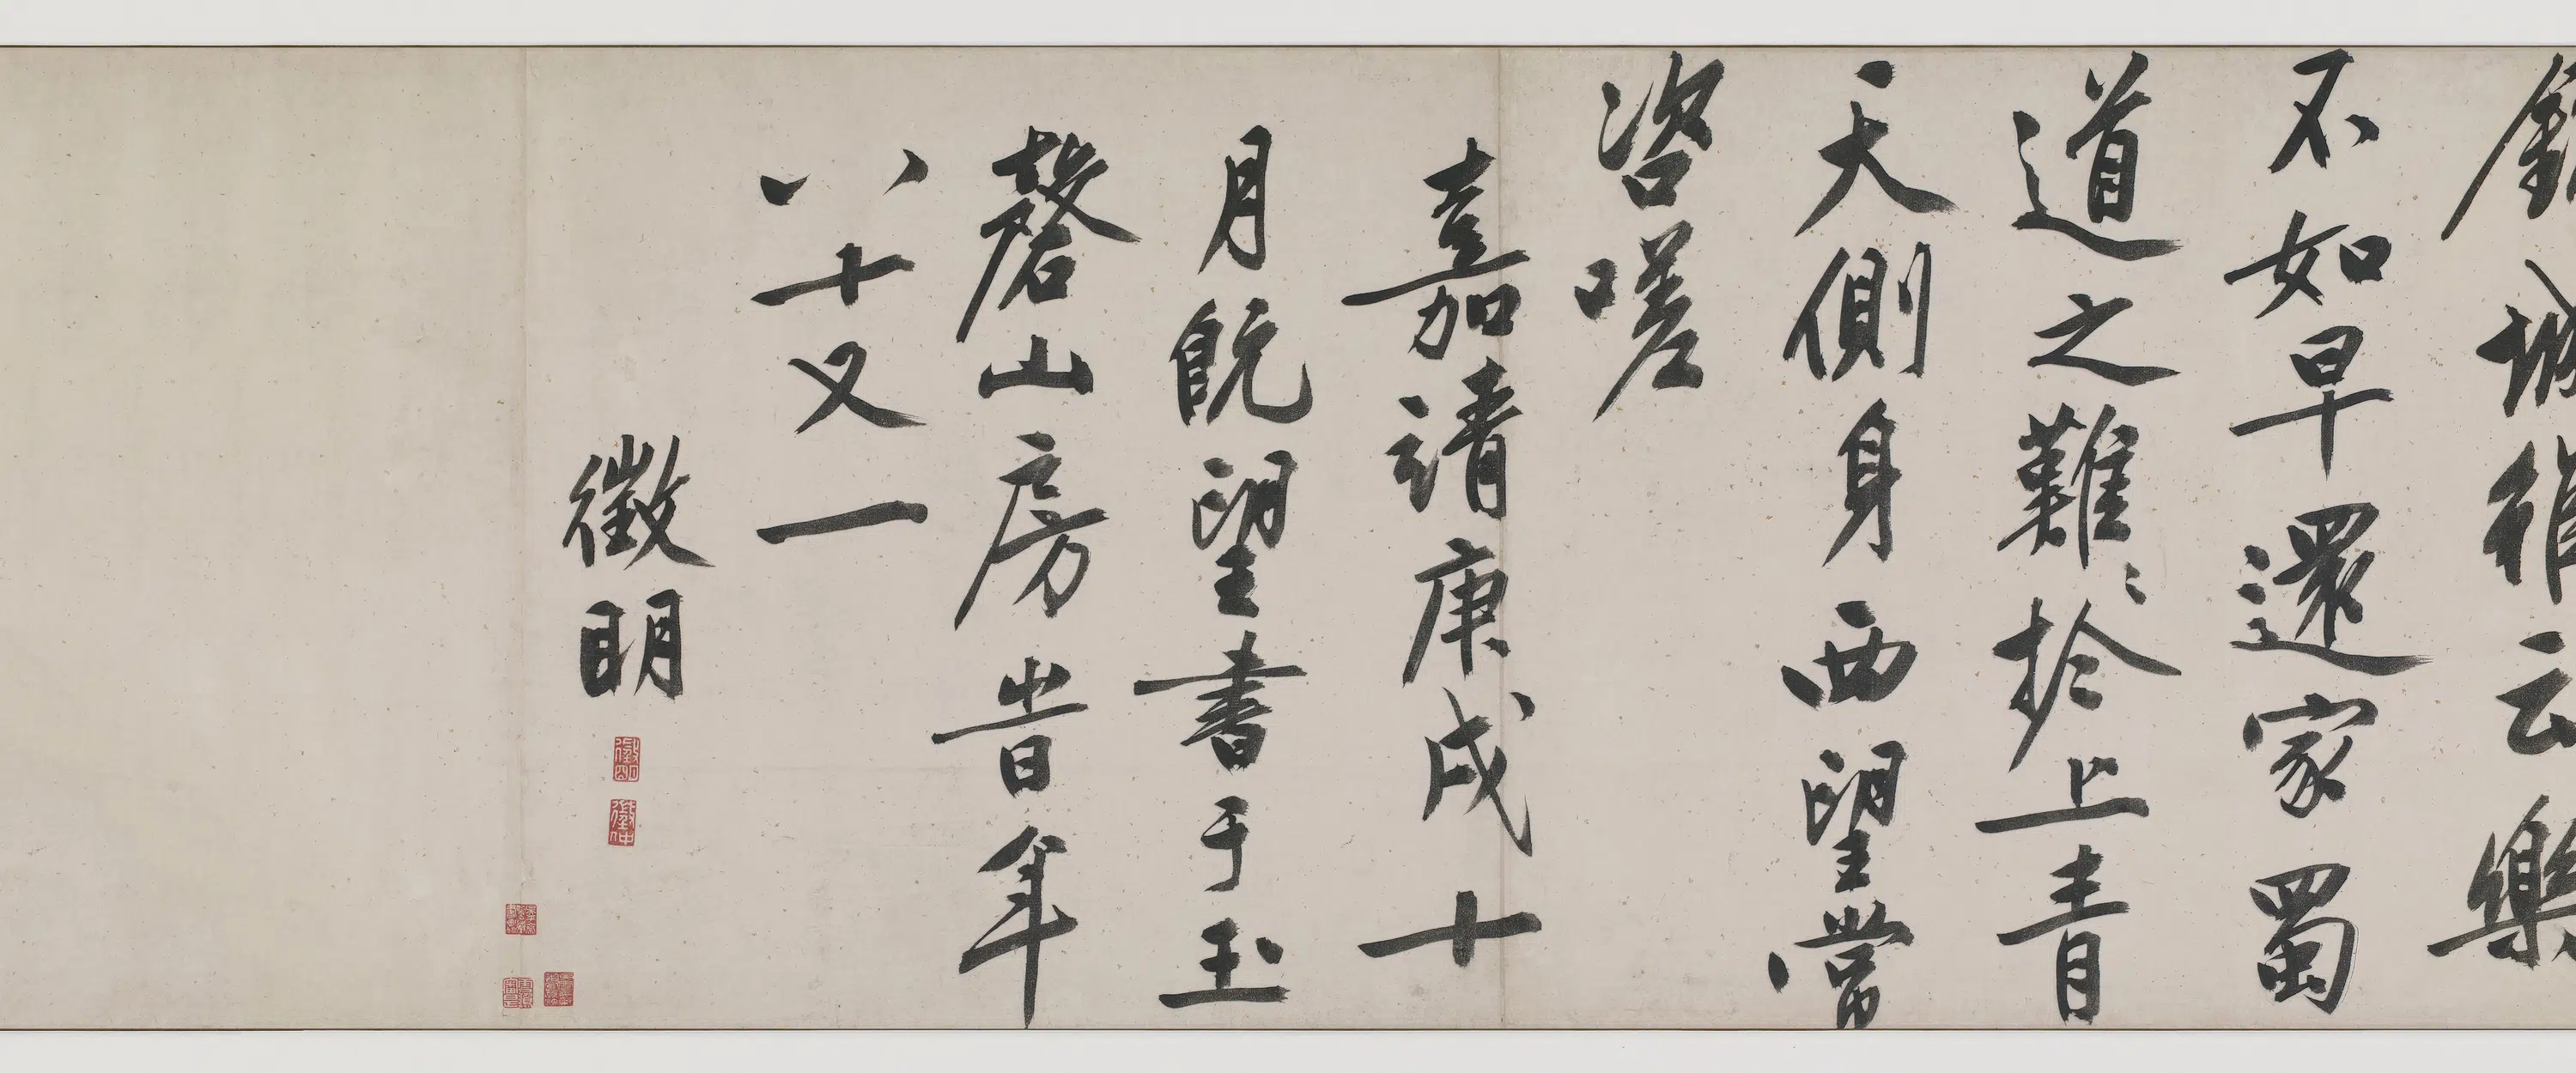 錦城雖云樂
不如早還家蜀
道之難〻扵上青
天側身西望常
咨嗟
嘉靖庚戌十
月既望書于玉
磬山房旹年
八十又一
徵明
徵明
徵仲